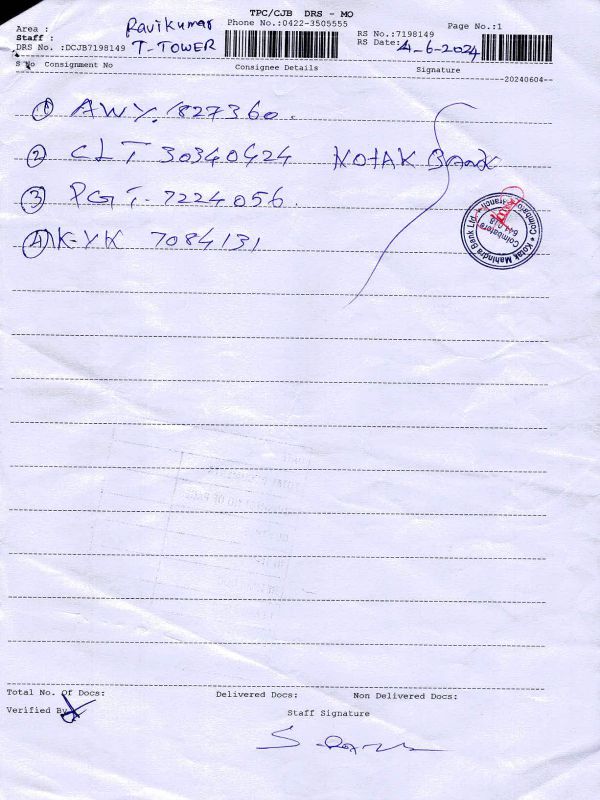 TPC/CJB DRS - MO
Area : Ravikumar Phone No.:0422-3505555 Page No.:1
Staff : RS No.:7198149
DRS No. :DCJB7198149 T-TOWER RS Date: 4-6-2024
S No Consignment No Consignee Details Signature
20240604
1 AWY. 1827360.
2 CLT 30340424 KOTAK BANK
3 PGT. 7224056.
4 KYK 7084131
Kotak Mahindra Bank Ltd.
Coimbatore
Total No. Of Docs: Delivered Docs: Non Delivered Docs:
Verified By Staff Signature